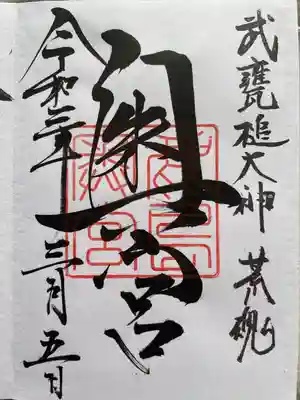 武甕槌大神 荒魂
奥宮
令和三年三月五日